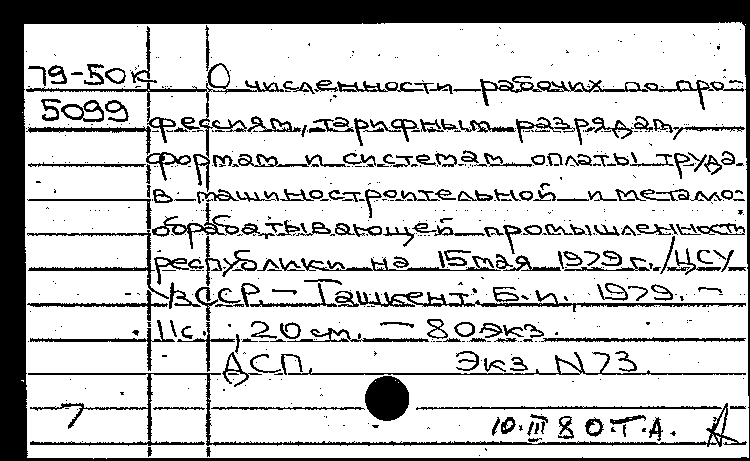 79-50к О численности рабочих по про-
5099 фессиям, тарифным разрядам,
формам и системам оплаты труда
в машиностроительной и металло-
обрабатывающей промышленность
республики на 15 мая 1979 г. / ЦСУ
УзССР. — Ташкент: Б.и., 1979. —
11с.; 20 см. — 80экз.
ДСП. Экз. N 73.
7
10.III 80 Т.А.